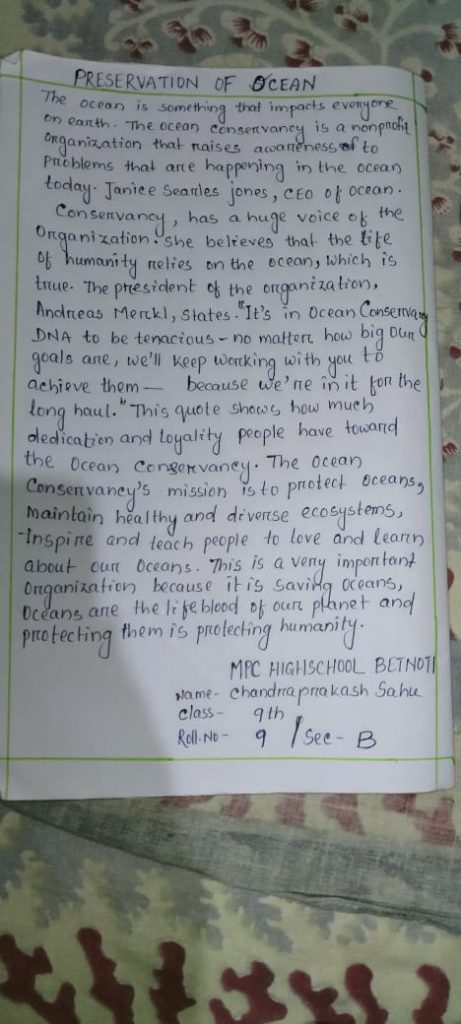 PRESERVATION OF OCEAN
The ocean is something that impacts everyone
on earth. The ocean conservancy is a nonprofit
Organization that raises awareness of to
problems that are happening in the ocean
today. Janice Searles jones, CEO of ocean.
Conservancy, has a huge voice of the
Organization. She believes that the life
Of humanity relies on the ocean, which is
true. The president of the organization,
Andreas Merckl, States. "It's in Ocean Conservancy
DNA to be tenacious - no matter how big our
goals are, we'll keep working with you to
achieve them — because we're in it for the
long haul." This quote shows how much
dedication and loyality people have toward
the Ocean Conservancy. The Ocean
Conservancy's mission is to protect oceans,
maintain healthy and diverse ecosystems,
Inspire and teach people to love and learn
about our Oceans. This is a very important
Organization because it is saving oceans,
Oceans are the lifeblood of our planet and
protecting them is protecting humanity.
MPC HIGHSCHOOL BETNOTI
Name - Chandraprakash Sahu
Class - 9th
Roll.No - 9 / Sec - B